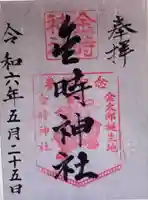 奉拝
金時神社
金太郎誕生地
金時神社
令和六年五月二十五日